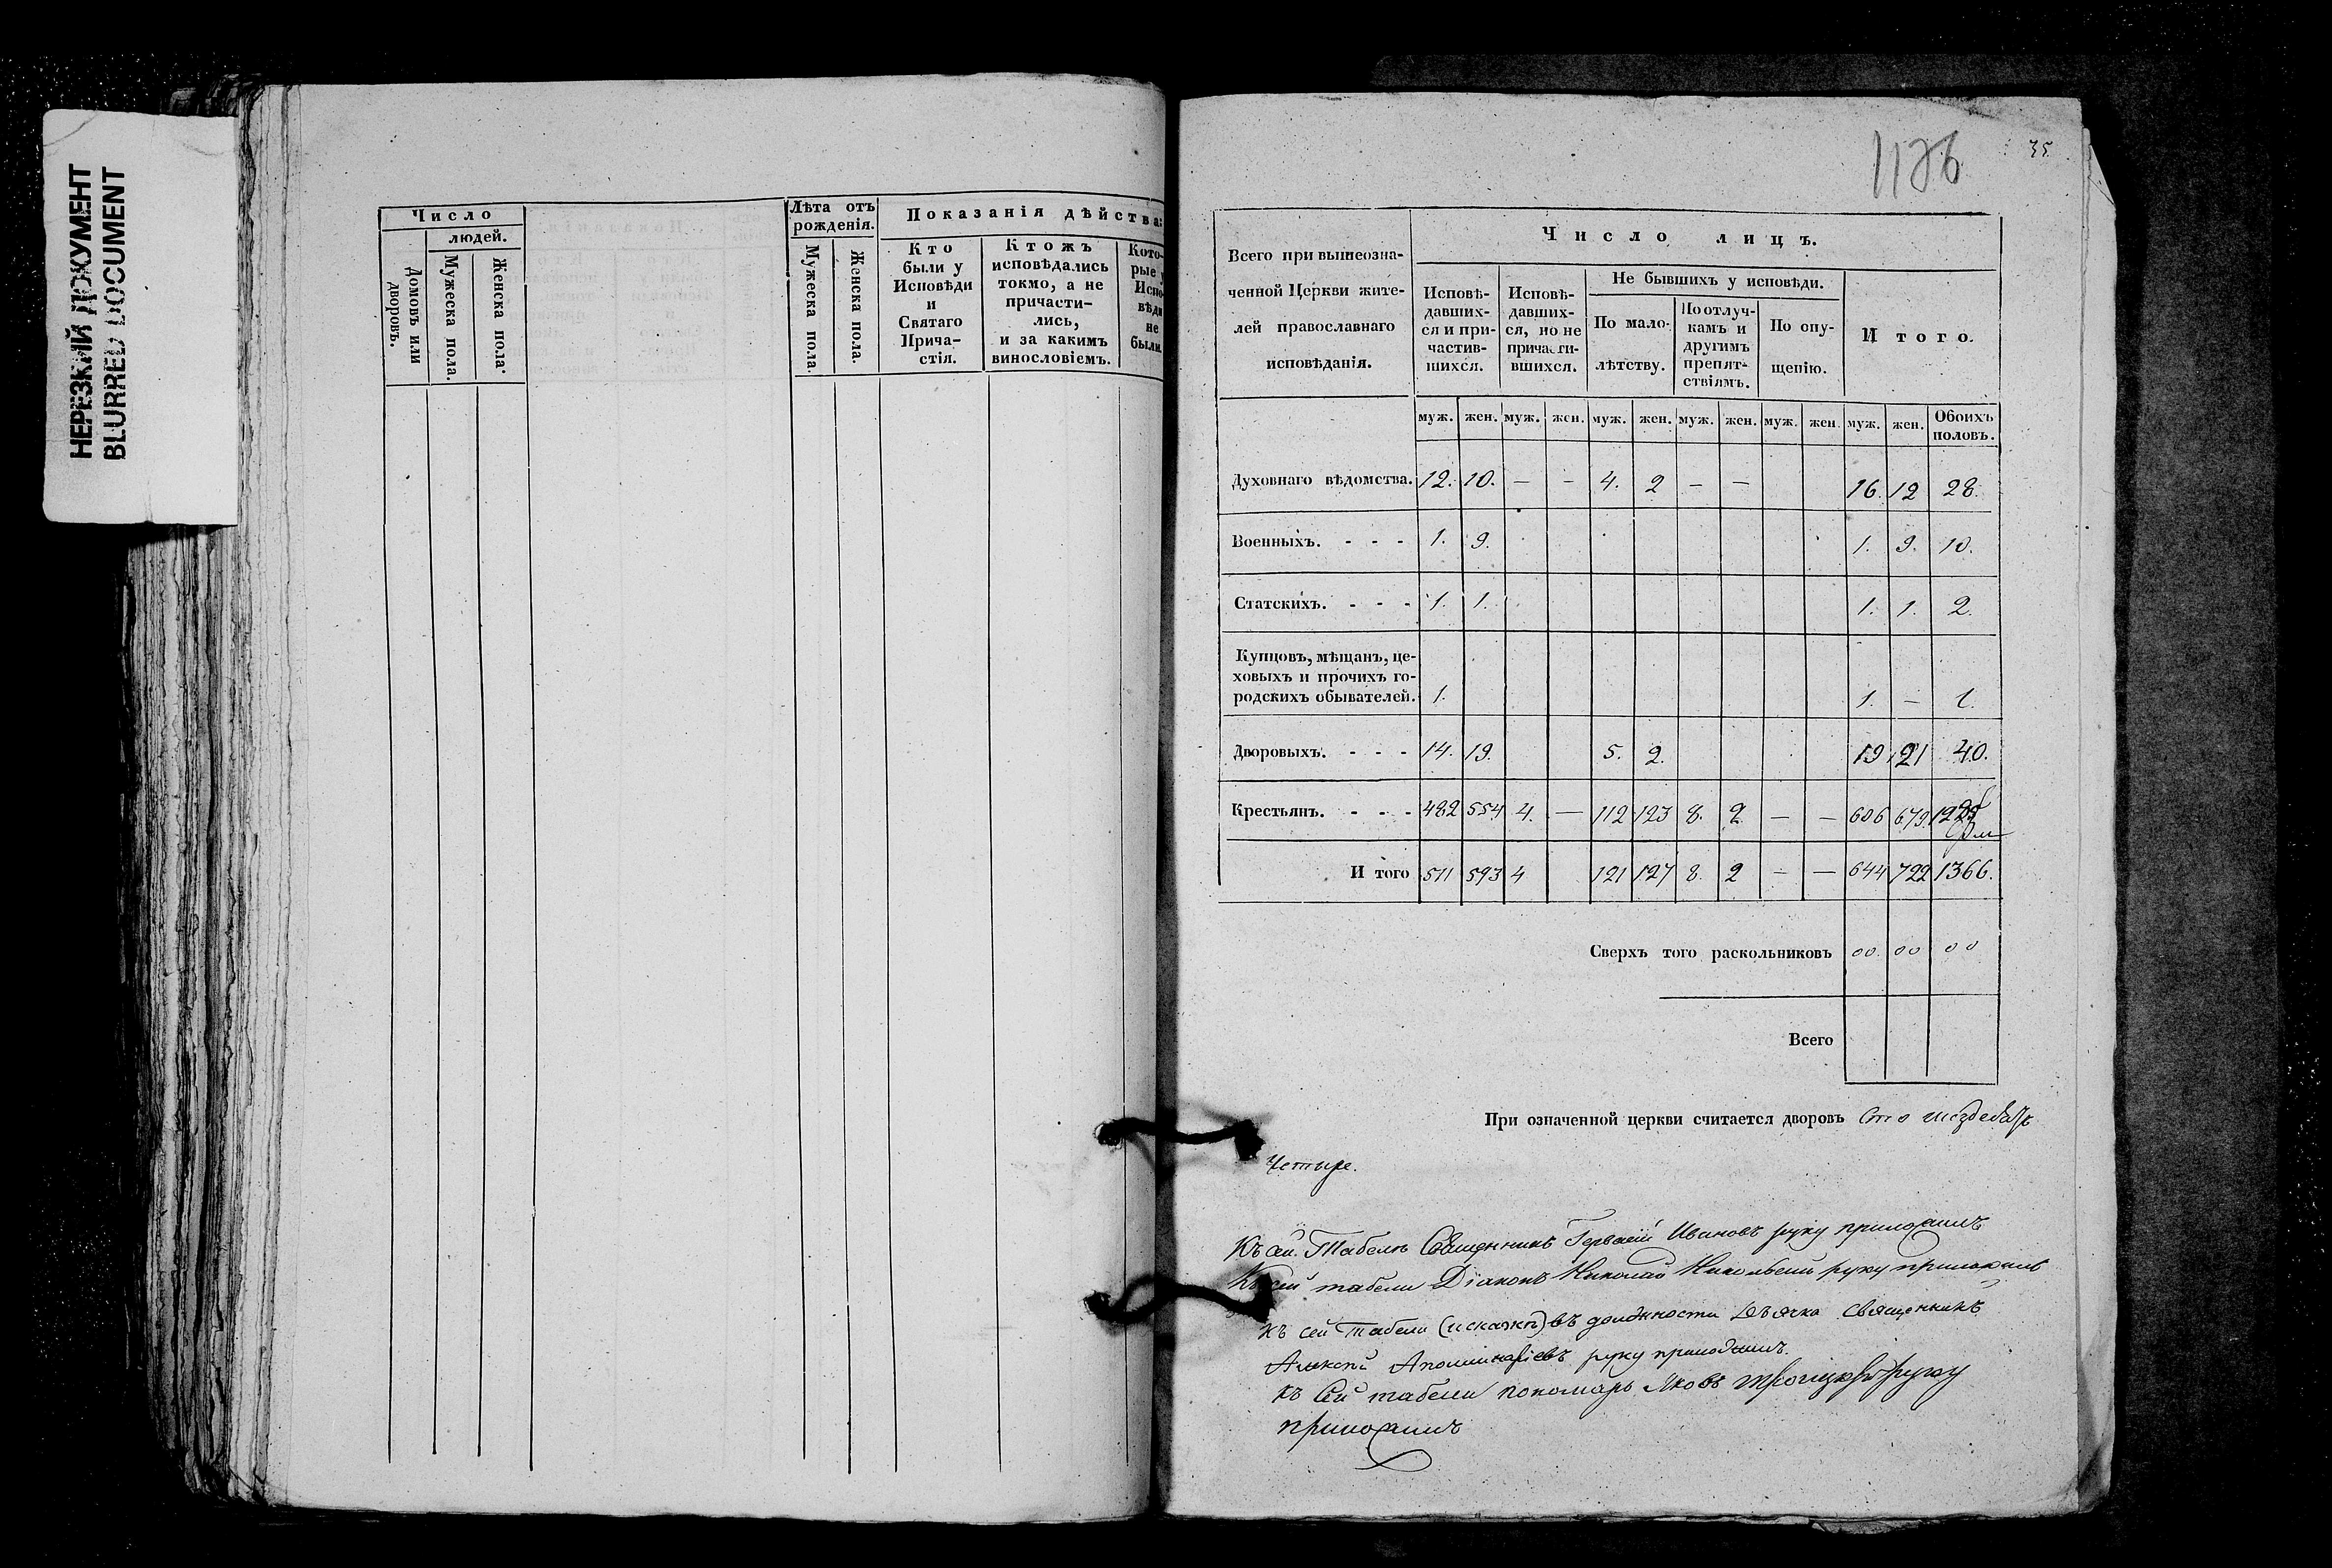 НЕРЕЗКИЙ ДОКУМЕНТ
BLURRED DOCUMENT
Число
людей.
Домовъ или дворовъ.
Мужеска пола.
Женска пола.
Лѣта отъ
рожденія.
Мужеска пола.
Женска пола.
Показанія дѣйства:
Кто
были у
Исповѣди
и
Святаго
Прича-
стія.
Ктожъ
исповѣдались
токмо, а не
причасти-
лись,
и за какимъ
винословіемъ.
Кото-
рые у
Испо-
вѣди
не
были.
35
Всего при вышеозна-
ченной Церкви жите-
лей православнаго
исповѣданія.
Число лицъ.
Исповѣ-
давших-
ся и при-
частив-
шихся.
Исповѣ-
давших-
ся, но не
причасти-
вшихся.
Не бывшихъ у исповѣди.
По мало-
лѣтству.
По отлуч-
камъ и
другимъ
препят-
ствіямъ.
По опу-
щенію.
Итого.
муж. жен. муж. жен. муж. жен. муж. жен. муж. жен. муж. жен. Обоихъ
половъ.
Духовнаго вѣдомства. 12. 10. — - 4. 2 — — 16. 12 28.
Военныхъ. - - - 1. 9. 1. 9. 10.
Статскихъ. - - - 1. 1. 1. 1. 2.
Купцовъ, мѣщанъ, це-
ховыхъ и прочихъ го-
родскихъ обывателей. 1. 1. — 1.
Дворовыхъ. - - - 14. 19. 5. 2. 19 21 40.
Крестьянъ. - - - 482 554 4. — 112 123 8. 2 — — 606 679
И того 511 593 4 121 127 8. 2 — — 644 722 1366.
Сверхъ того раскольниковъ 00. 00 00
Всего
При означенной церкви считается дворовъ Сто шездесятъ
Четыре.
Къ сей Табели Священникъ Гервасій Ивановъ руку приложилъ
Къ сей табели Діаконъ Николай Никольскій руку приложилъ
Къ сей табели въ должности Дьячка Священникъ
Алексѣй Аполинаріевъ руку приложилъ.
Къ Сей табели пономарь Яковъ Троицкій руку
приложилъ